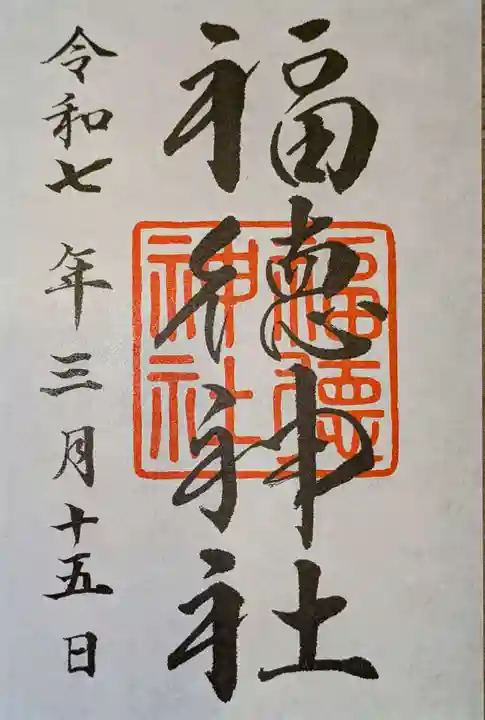 福徳神社
福徳
神社
令和七年三月十五日